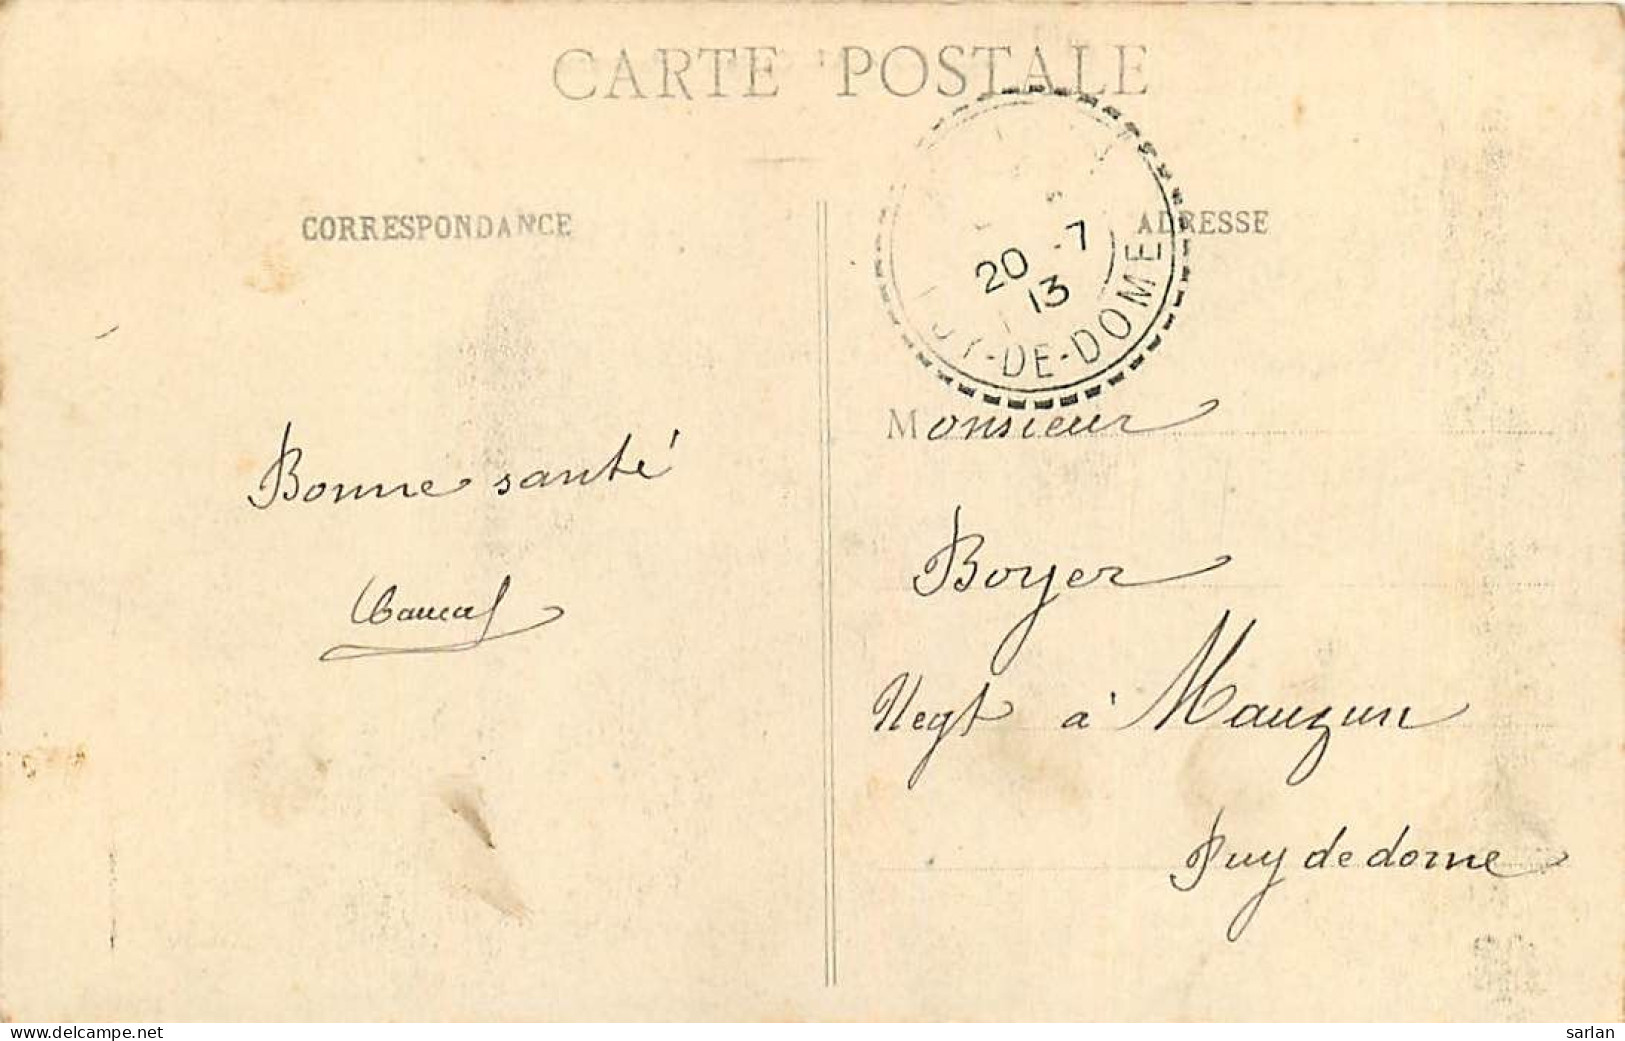 CARTE POSTALE
CORRESPONDANCE
ADRESSE
20 -7
13
PUY-DE-DOME
Bonne santé
Monsieur
Boyer
Negt à Mauzun
Puy de dome
www.delcampe.net
sarlan